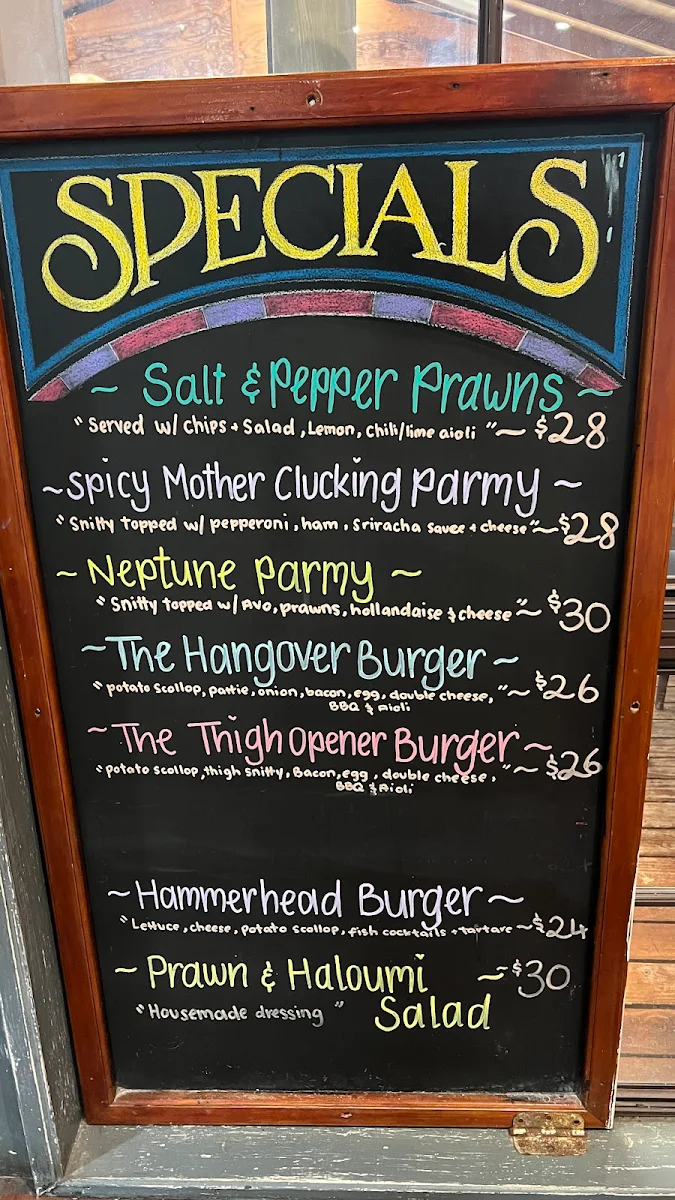 SPECIALS
~ Salt & Pepper Prawns ~
"Served w/ chips + Salad, Lemon, chili/lime aioli" ~ $28
~ spicy Mother Clucking parmy ~
"Snitty topped w/ pepperoni, ham, Sriracha sauce + cheese" ~ $28
~ Neptune parmy ~
"Snitty topped w/ Avo, prawns, hollandaise & cheese" ~ $30
~ The Hangover Burger ~
"potato Scollop, pattie, onion, bacon, egg, double cheese, " ~ $26
BBQ & Aioli
~ The Thigh opener Burger ~
"potato scollop, thigh snitty, Bacon, egg, double cheese, " ~ $26
BBQ & Aioli
~ Hammerhead Burger ~
"Lettuce, cheese, potato scollop, fish cocktails + tartare ~ $24
~ Prawn & Haloumi ~ $30
"Housemade dressing" Salad